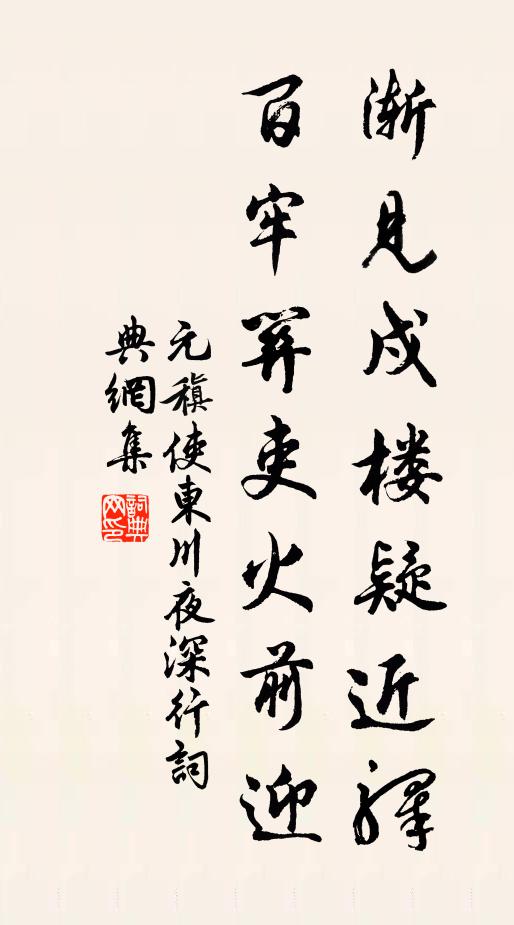 漸見戍楼疑近驛
百牢關吏火前迎
元稹使東川夜深行詞
典網集
詞典
网印